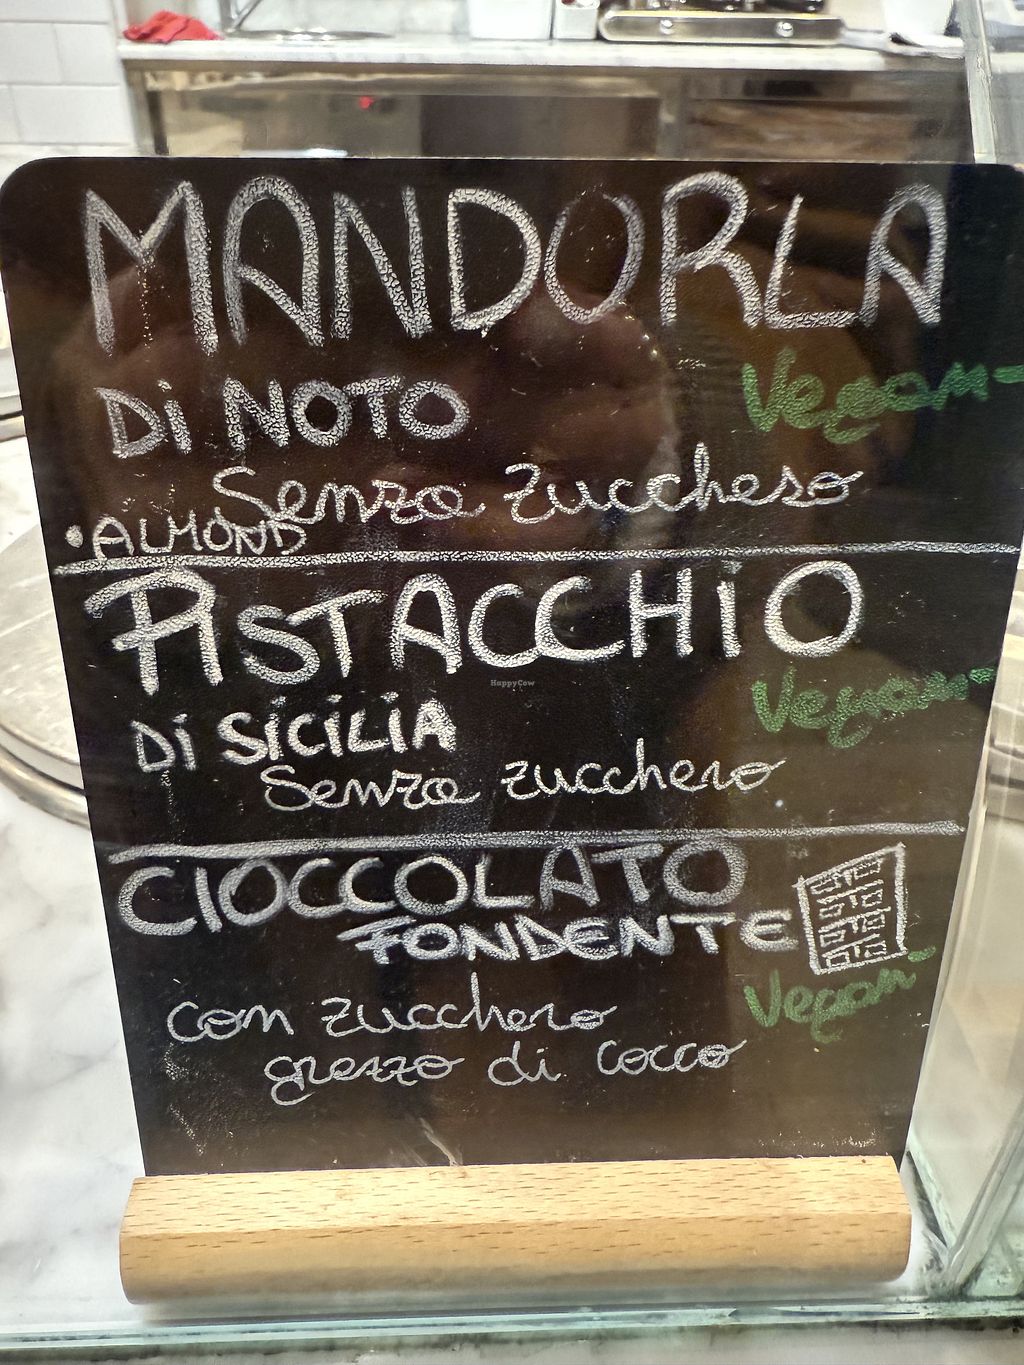 MANDORLA
Di NOTO
Vegan
Senza zucchero
• ALMOND
PISTACCHiO
Vegan
Di SiCiLiA
Senza zucchero
CIOCCOLATO
FONDENTE
Vegan
con zucchero
grezzo di cocco
HappyCow